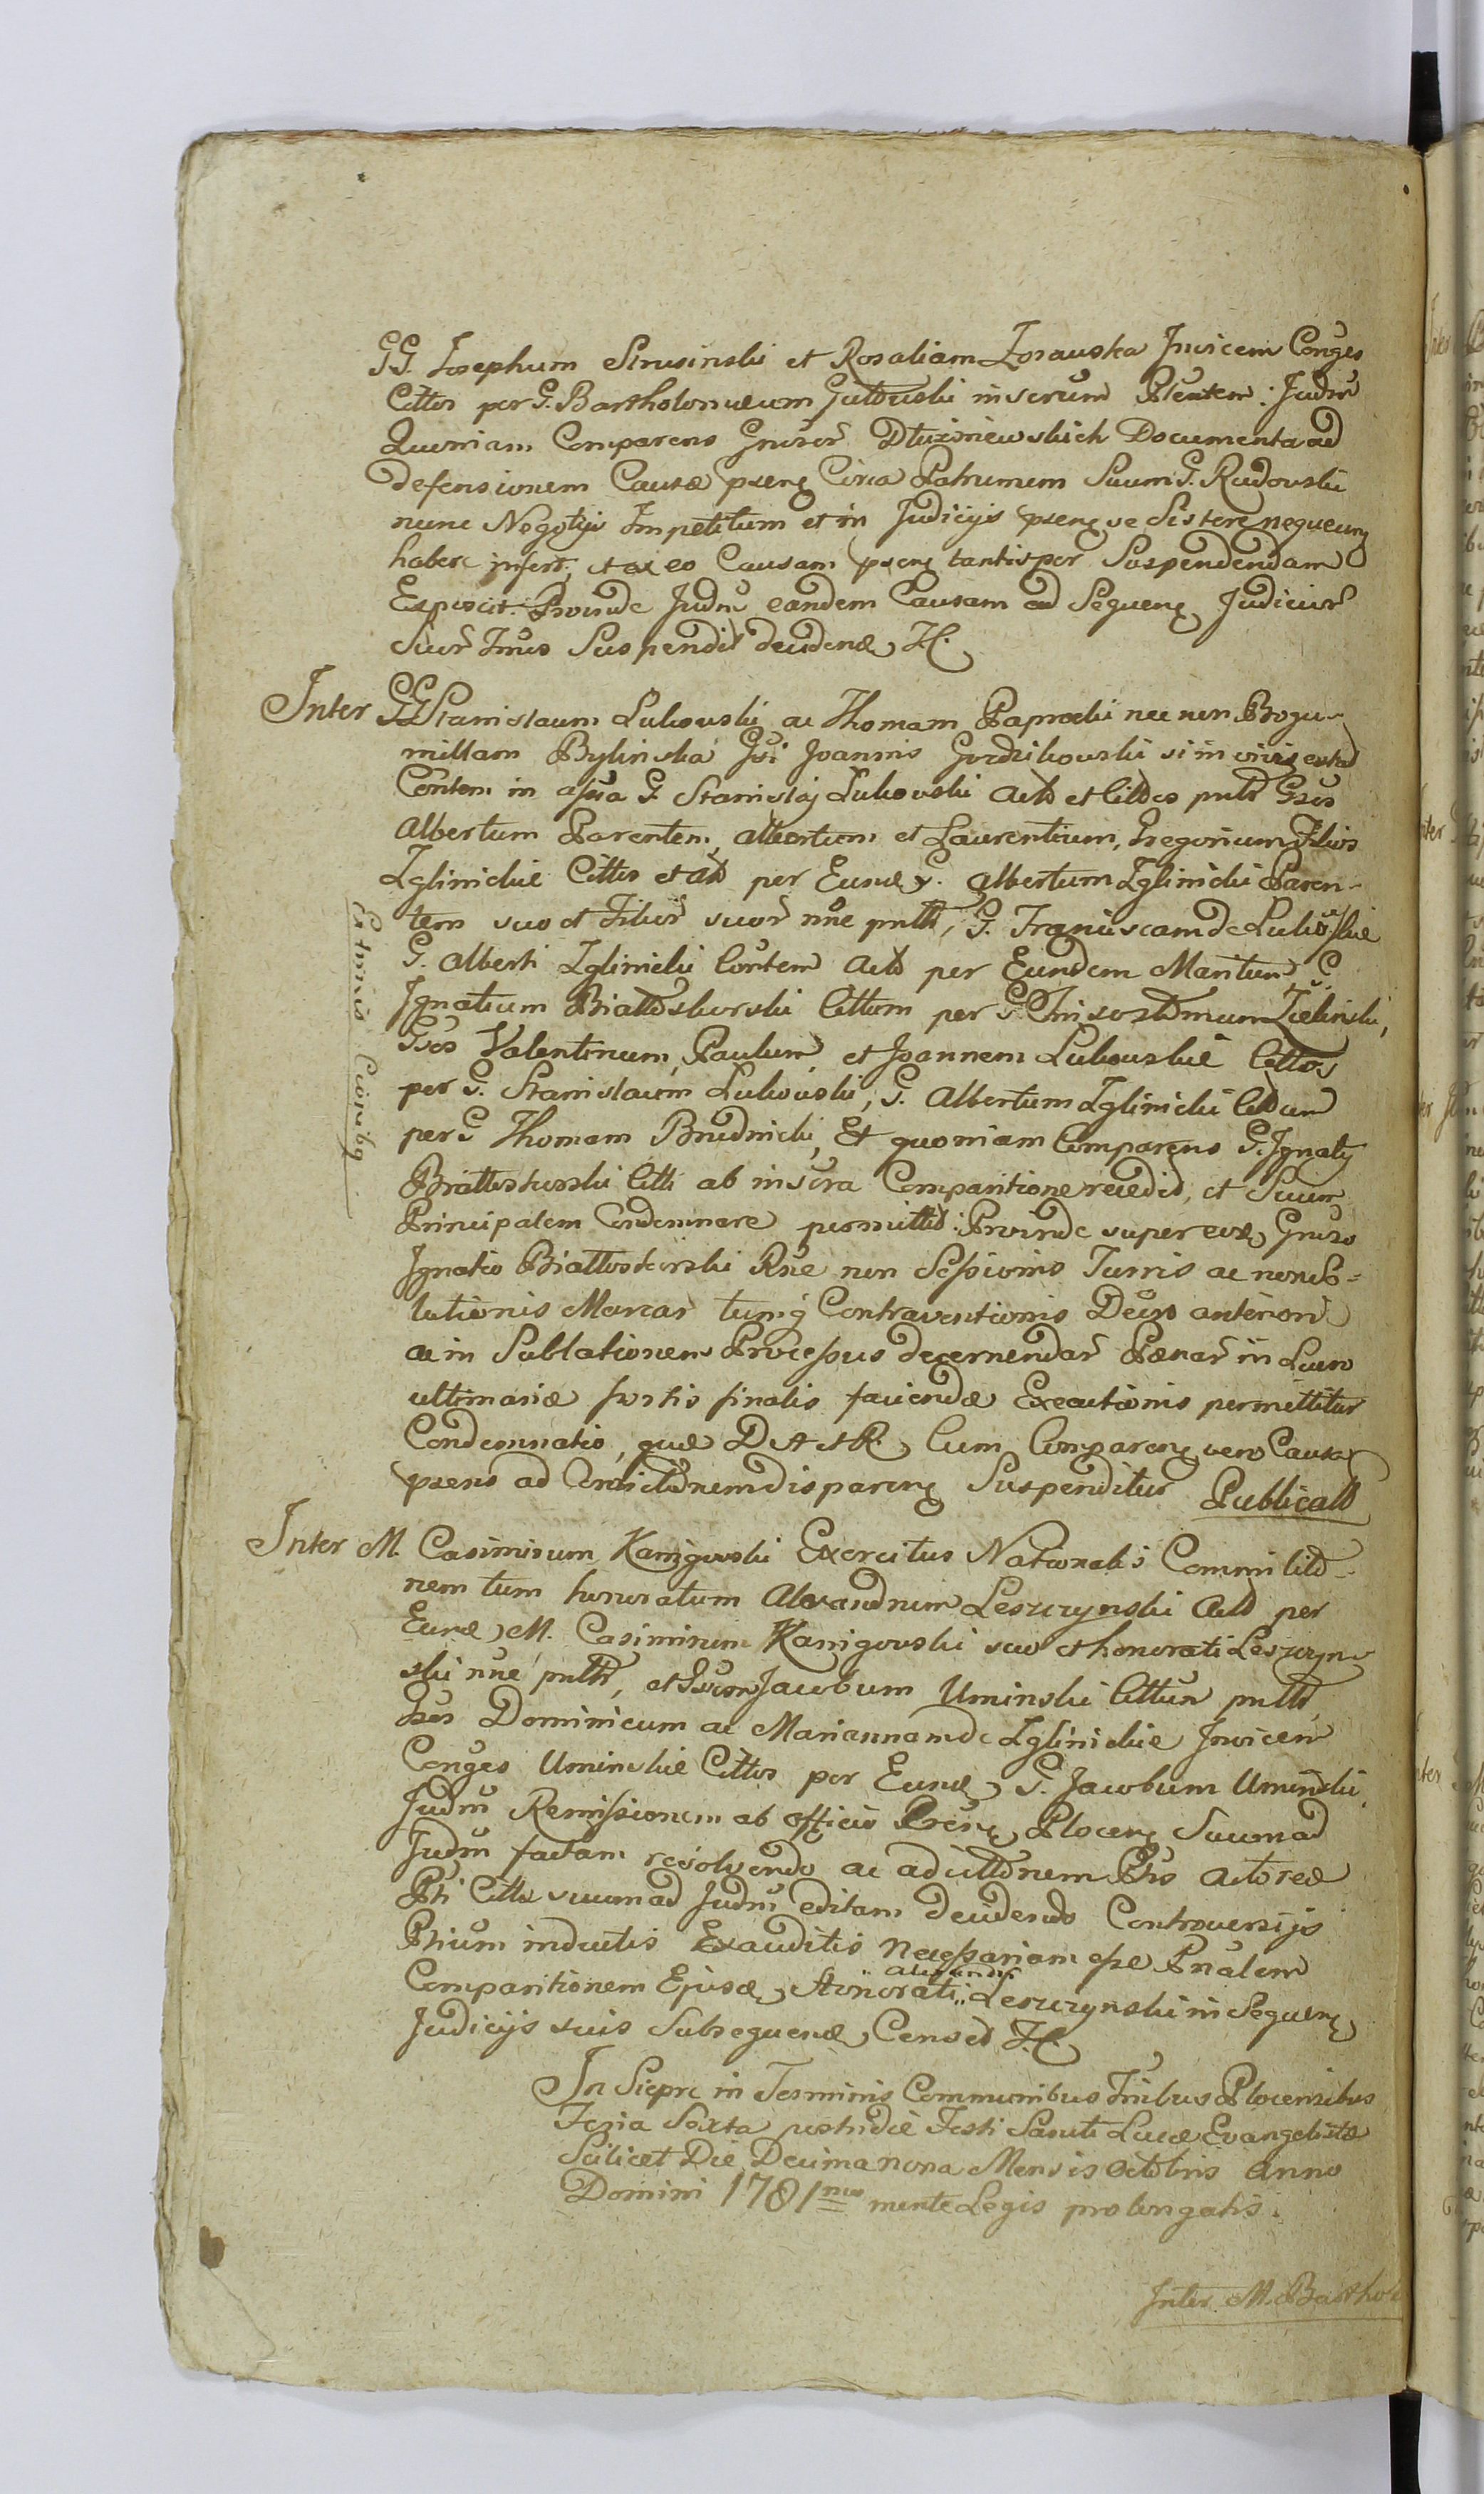 GG. Josephum Strusinski et Rosaliam Zorawska Invicem Conges
Cittos per G. Bartholomæum Gutowski inscrum Pltentem: Judm
Quoniam Comparens Gnrosor Dłuzniewskich Documenta ad
defensionem Causæ psens Circa Patruum Suum G. Rudowski
nunc Negotijs Impetitum et in Judicijs psens se Sistere nequeun
habere infert, et ex eo Causam psens tantisper Suspendendam
Exposcit. Proinde Judm eandem Causam ad Sequens Judicior
Suor Tnus Suspendit decidend H.
Inter GG Stanislaum Lukowski ac Thomam Paprocki nec non Bogu-
millam Bylinska Gsi Joannis Gozdzikowski si in vivis extat
Contem in assa G. Stanislaj Lukowski Acto et Cittos pntt Gsos
Albertum Parentem, Albertum et Laurentium, Gregorium Filios
Zglinickie Cittos et Act per Eund G. Albertum Zglinicki Paren-
tem suo et Filior suor nne pntt, G. Franciscam de Lukowskie
G. Alberti Zglinicki Contem Act per Eundem Maritum, G.
Ignatium Białłoskorski Cittum per G. Chrisostomum Zielinski,
Gsos Valentinum, Paulum, et Joannem Lukowskie Cittos
per G. Stanislaum Lukowski, G. Albertum Zglinicki Cittum
per G Thomam Brudnicki, Et quoniam Comparens G. Ignatij
Białłoskorski Citti ab inscra Comparitione recedit, et Suum
Principalem Condemnare permittit: Proinde super eod Gnroso
Ignatio Białłoskorski Rne non Sessionis Turris ac non So-
lutionis Marcar tumq Contraventionis Decro anteriori
ac in Sublationem Processus decernendar Pænar in Lucro
ultimariæ fortis finalis faciendæ Executionis permittitur
Condemnatio, quæ D A et R. Cum Comparen vero Causa
psens ad Condictionem disparens Suspenditur Publicatt
Extensis Cionibq
Inter M. Casimirum Kanigowski Exercitus Nationalis Commilito-
nem tum honoratum Alexandrum Leszczynski Act per
Eund M. Casimirum Kanigowski suo et honorati Leszczyn-
ski nne pntt, et Gsum Jacobum Uminski Cittum pntt,
Gsos Dominicum ac Mariannam de Zglinickie Invicem
Conges Uminskie Cittos per Eund G. Jacobum Uminski.
Judm Remissionem ab officio Cren Plocen Suum ad
Judm factam resolvendo ac ad cittonem Ptis Actoreæ
Pti Cittæ suum ad Judm editam decidendo Controversijs
Ptium inductis Exauditis Necessariam esse Pnalem
Comparitionem Ejusd Honorati Alexandri Leszczynski in Sequen
Judicijs suis Subsequend Censet H.
In Sierpc in Terminis Communibus Tribus Plocensibus
Feria Sexta postridie Festi Sancti Lucæ Evangelistæ
Scilicet Die Decima nona Mensis Octobris Anno
Domini 1781mo mente Legis prolongatis.
Inter M. Bartho